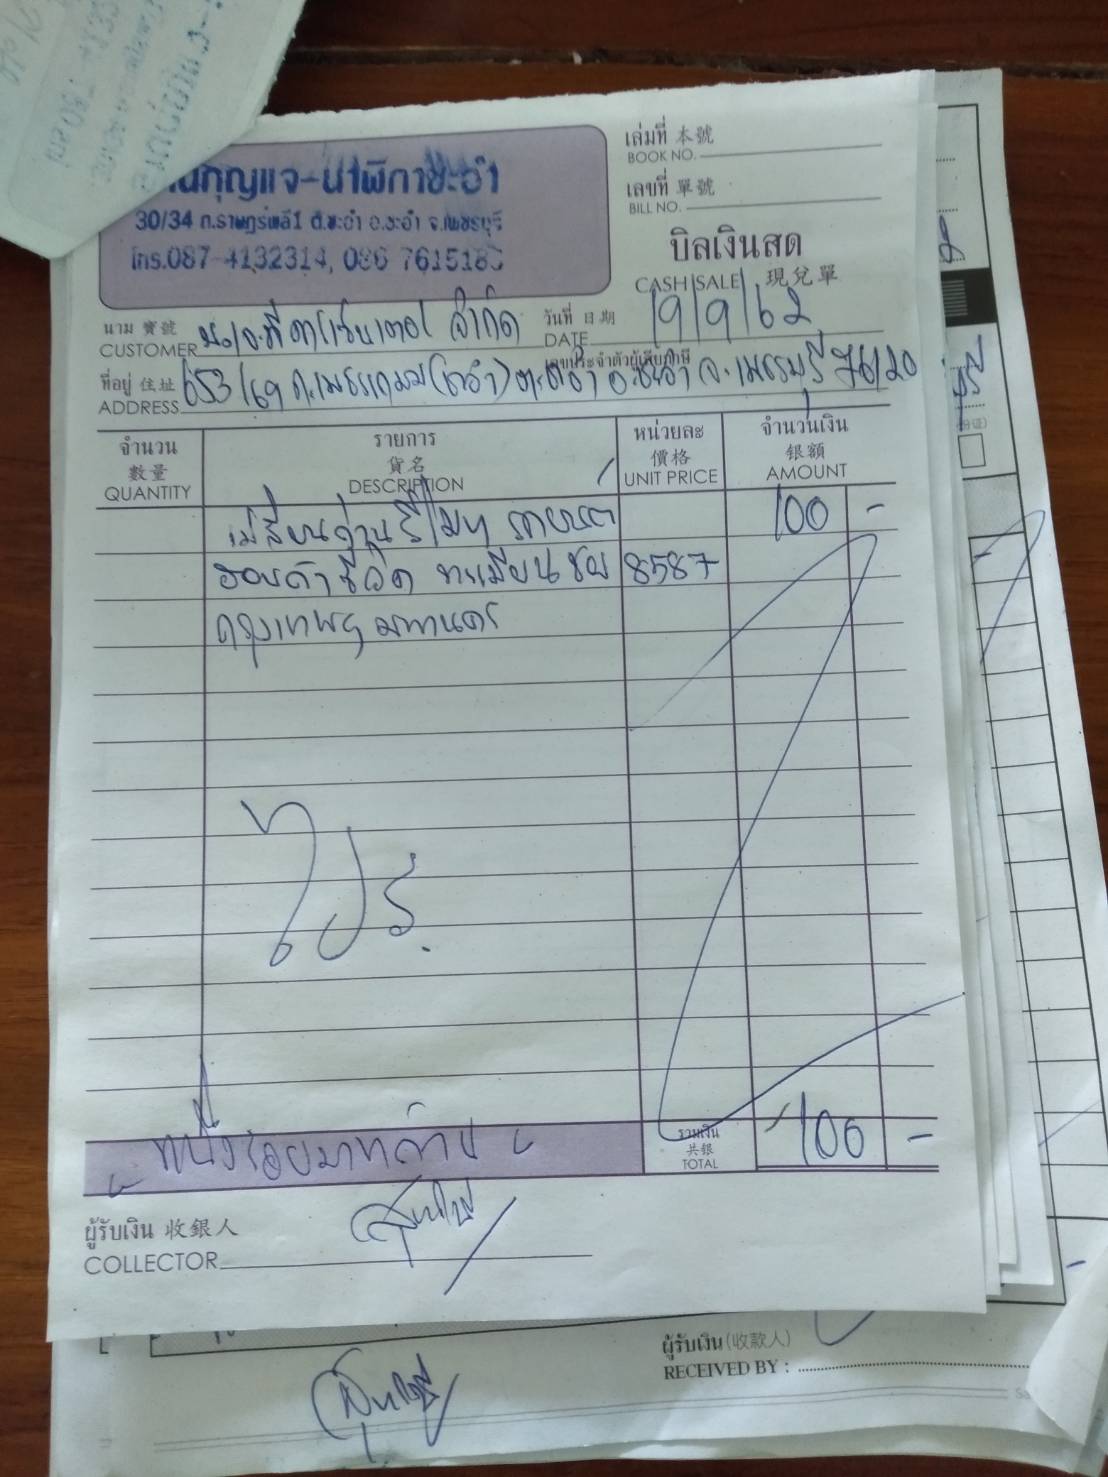 นกุญแจ-นาฬิกาชะอำ
30/34 ถ.ราษฎร์พลี1 ต.ชะอำ อ.ชะอำ จ.เพชรบุรี
โทร.087-4132314, 086 7615183
เล่มที่ 本號
BOOK NO.
เลขที่ 單號
BILL NO.
บิลเงินสด
CASH SALE 現兌單
นาม 寶號
CUSTOMER จำกัด
วันที่ 日期
DATE 19/9/62
เลขประจำตัวผู้เสียภาษี
ที่อยู่ 住址
ADDRESS 653/69 ถ.เพชรเกษม(ชะอำ) ต.ชะอำ อ.ชะอำ จ.เพชรบุรี 76120
จำนวน 數量 QUANTITY
รายการ 貨名 DESCRIPTION
หน่วยละ 價格 UNIT PRICE
จำนวนเงิน 銀額 AMOUNT
เปลี่ยนถ่านรีโมท รถยนต์ 100 -
ฮอนด้าซีวิค ทะเบียน 8587
กรุงเทพฯ มหานคร
หนึ่งร้อยบาทถ้วน
รวมเงิน 共銀 TOTAL 100 -
ผู้รับเงิน 收銀人
COLLECTOR
ผู้รับเงิน (收款人)
RECEIVED BY :